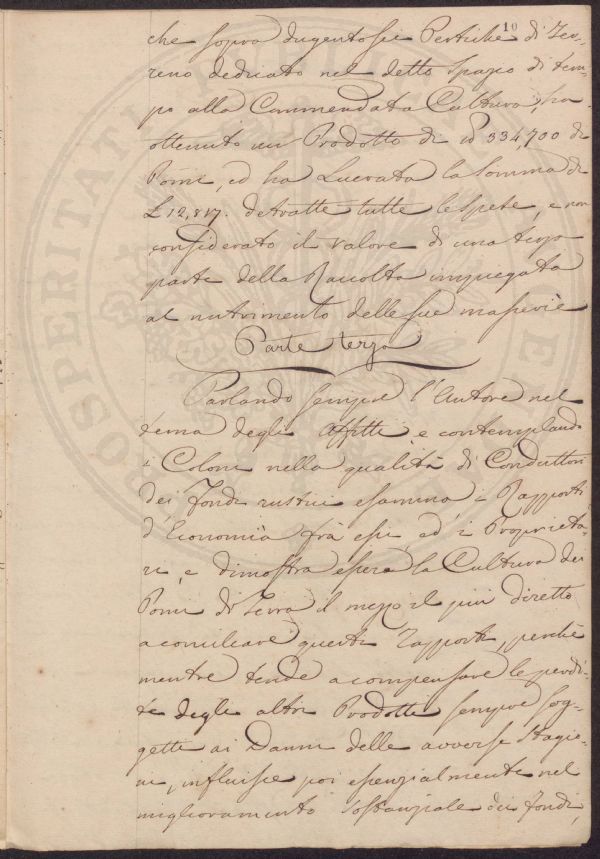 10
che sopra dugentosei Pertiche di Ter=
reno dedicato nel detto spazio di tem=
po alla Commendata Cultura, ha
ottenuto un Prodotto di 334,700 di
Pomi, ed ha Lucrata la Somma di
£ 12,817. detratte tutte le spese, e non
considerato il valore di una terza
parte della Raccolta impiegata
al nutrimento delle sue masserie
Parte terza
Parlando sempre l'Autore nel
tema degli Affitti, e contemplando
i Coloni nella qualità di Conduttori
dei fondi rustici esamina i Rapporti
d'Economia frà essi, ed i Proprieta=
rj, e dimostra essere la Cultura dei
Pomi di Terra il mezzo il più diretto
a conciliare questi rapporti, perchè
mentre tende a compensare le perdi=
te degli altri Prodotti sempre sog=
getti ai Danni delle avverse Stagio=
ni, influisce poi essenzialmente nel
miglioramento sostanziale dei fondi,